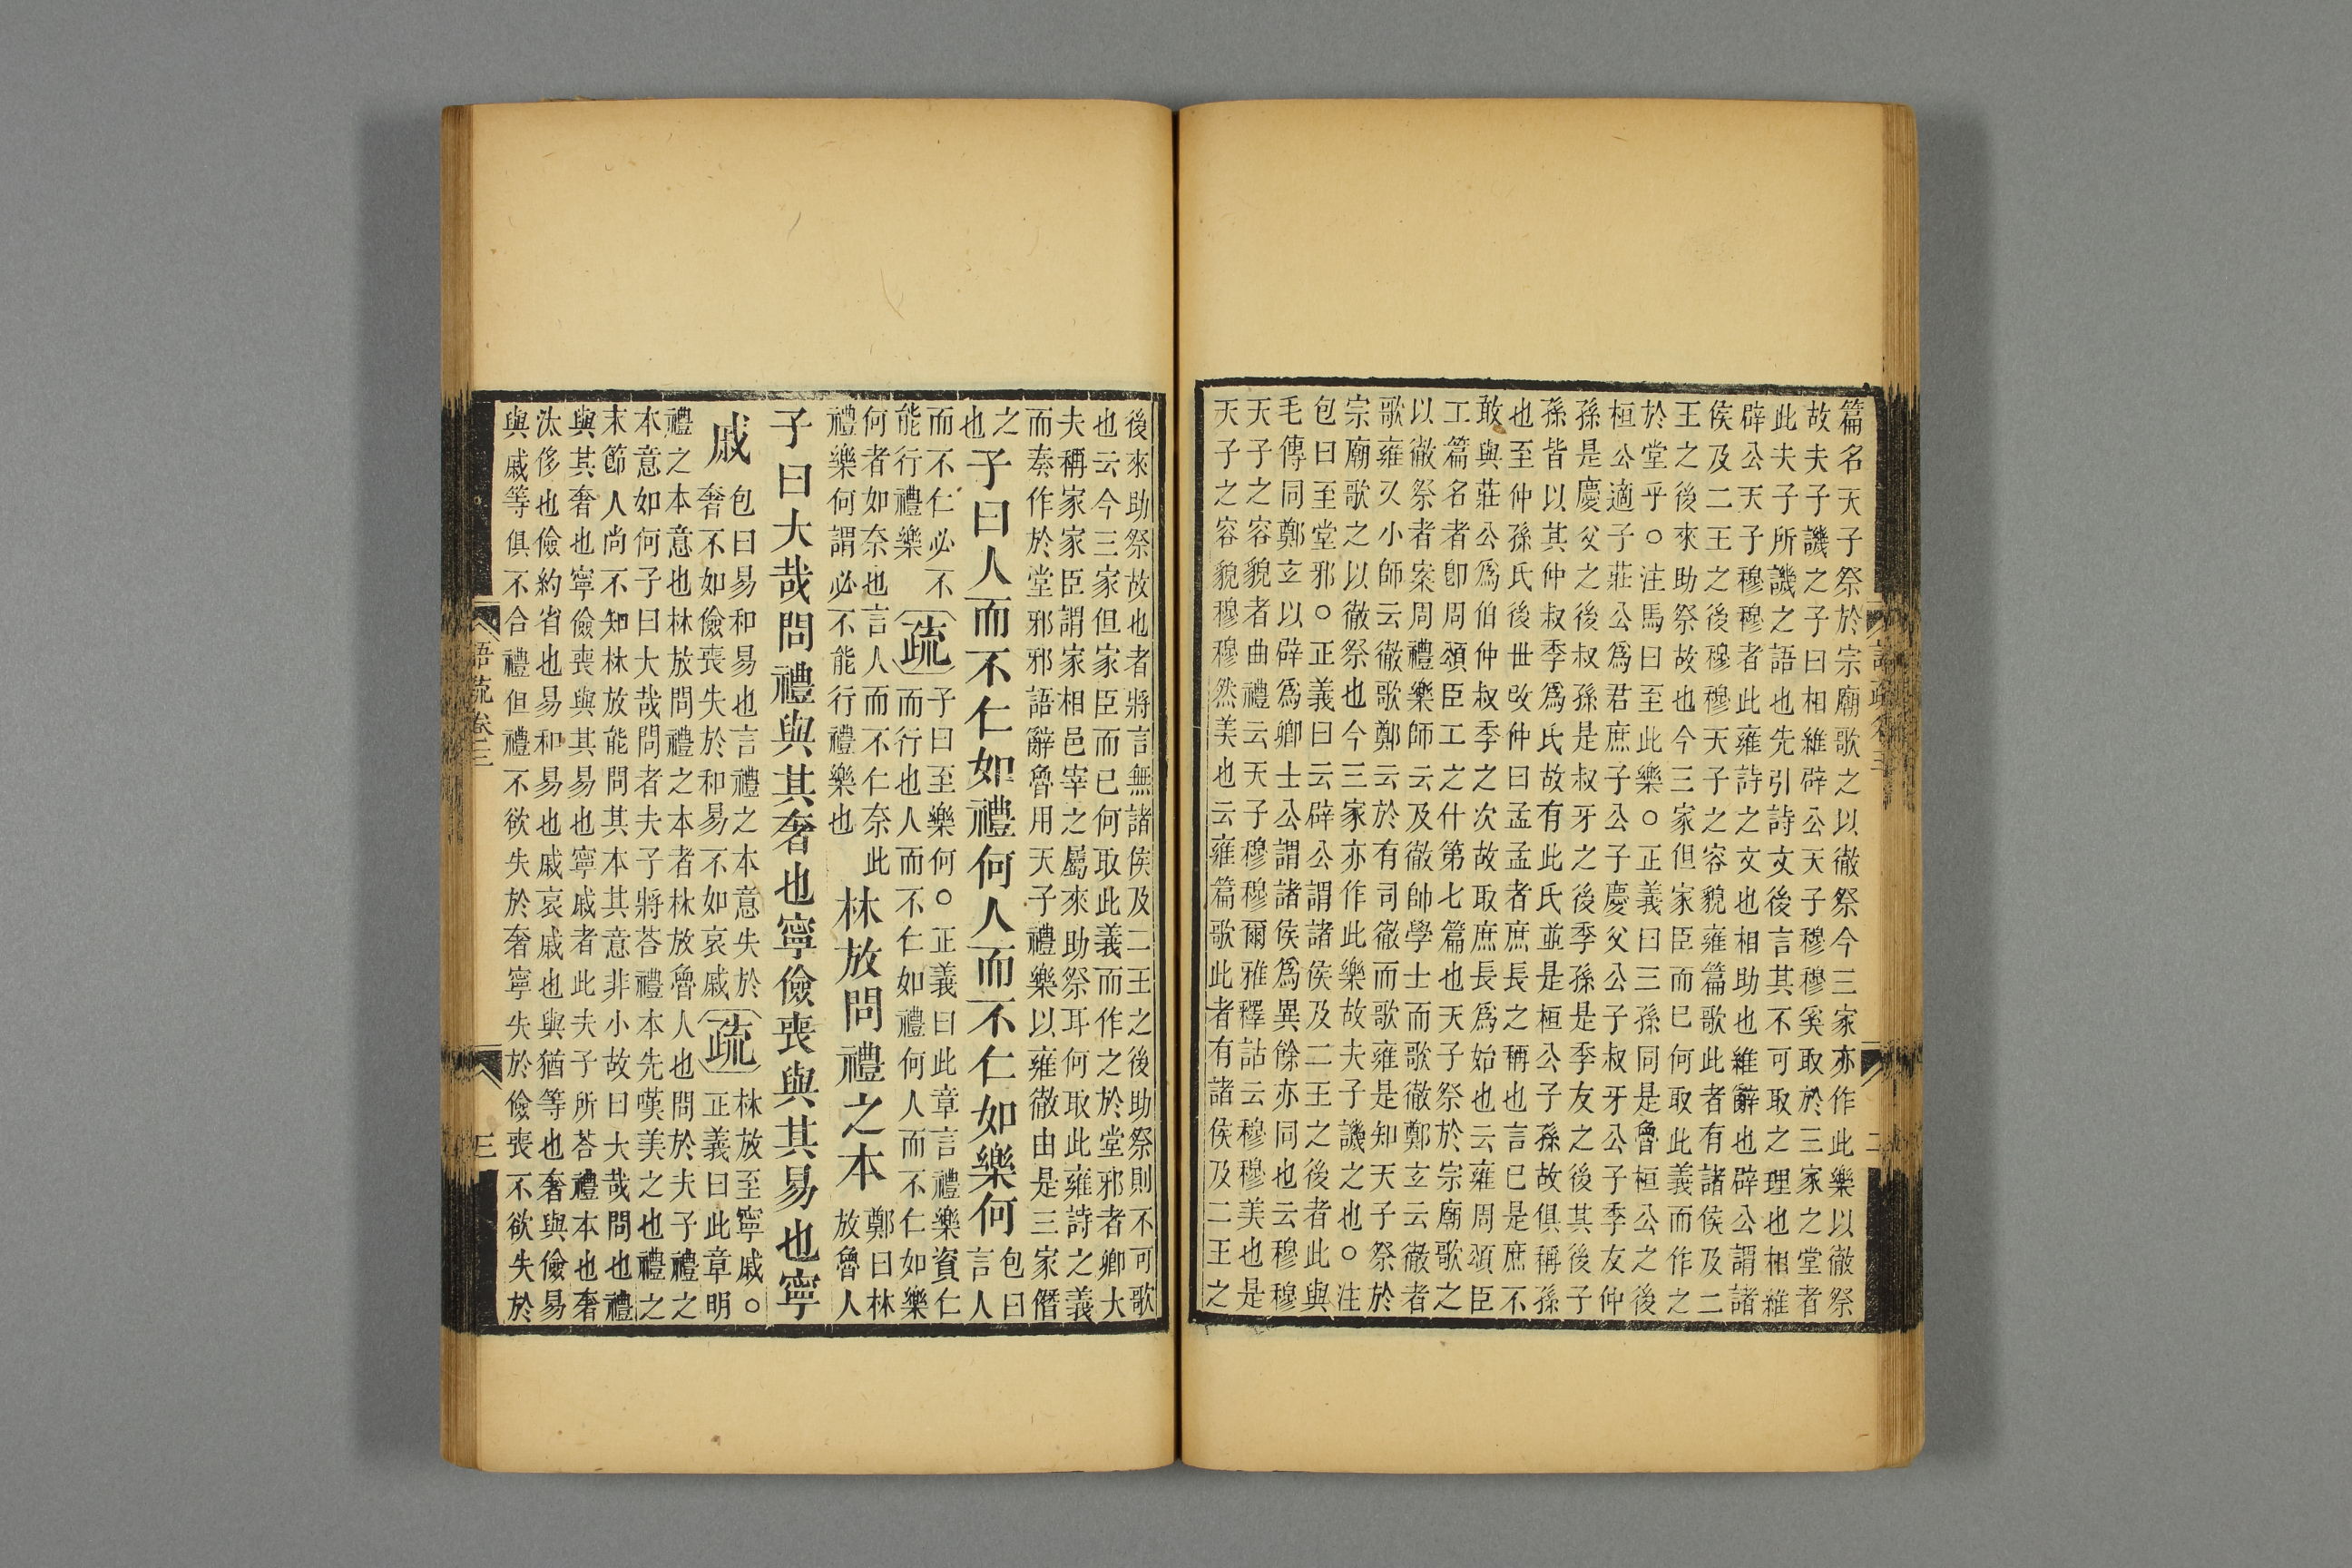 篇名天子祭於宗廟歌之以徹祭今三家亦作此樂以徹祭
故夫子譏之子曰相維辟公天子穆穆奚取於三家之堂者
此夫子所譏之語也先引詩文後言其不可取之理也相維
辟公天子穆穆者此雍詩之文也相助也維辭也辟公謂諸
侯及二王之後穆穆天子之容貌雍篇歌此者有諸侯及二
王之後來助祭故也今三家但家臣而已何取此義而作之
於堂乎○注馬曰至此樂○正義曰三孫同是魯桓公之後
桓公適子莊公爲君庶子公子慶父公子叔牙公子季友仲
孫是慶父之後叔孫是叔牙之後季孫是季友之後其後子
孫皆以其仲叔季爲氏故有此氏並是桓公子孫故俱稱孫
也至仲孫氏後世改仲曰孟孟者庶長之稱也言已是庶不
敢與莊公爲伯仲叔季之次故取庶長爲始也云雍周頌臣
工篇名者卽周頌臣工之什第七篇也天子祭於宗廟歌之
以徹祭者案周禮樂師云及徹帥學士而歌徹鄭玄云徹者
歌雍又小師云徹歌鄭云於有司徹而歌雍是知天子祭於
宗廟歌之以徹祭也今三家亦作此樂故夫子譏之也○注
包曰至堂邪○正義曰云辟公謂諸侯及二王之後者此與
毛傳同鄭玄以辟爲卿士公謂諸侯爲異餘亦同也云穆穆
天子之容貌者曲禮云天子穆穆爾雅釋詁云穆穆美也是
天子之容貌穆穆然美也云雍篇歌此者有諸侯及二王之
後來助祭故也者將言無諸侯及二王之後助祭則不可歌
也云今三家但家臣而已何取此義而作之於堂邪者卿大
夫稱家家臣謂家相邑宰之屬來助祭耳何取此雍詩之義
而奏作於堂邪邪語辭魯用天子禮樂以雍徹由是三家僭
之
也
子曰人而不仁如禮何人而不仁如樂何
包曰
言人
而不仁必不
能行禮樂
疏
子曰至樂何○正義曰此章言禮樂資仁
而行也人而不仁如禮何人而不仁如樂
何者如奈也言人而不仁奈此
禮樂何謂必不能行禮樂也
林放問禮之本
鄭曰林
放魯人
子曰大哉問禮與其奢也寧儉喪與其易也寧
戚
包曰易和易也言禮之本意失於
奢不如儉喪失於和易不如哀戚
疏
林放至寧戚○
正義曰此章明
禮之本意也林放問禮之本者林放魯人也問於夫子禮之
本意如何子曰大哉問者夫子將荅禮本先嘆美之也禮之
末節人尚不知林放能問其本其意非小故曰大哉問也禮
與其奢也寧儉喪與其易也寧戚者此夫子所荅禮本也奢
汰侈也儉約省也易和易也戚哀戚也與猶等也奢與儉易
與戚等俱不合禮但禮不欲失於奢寧失於儉喪不欲失於
語疏卷三
三